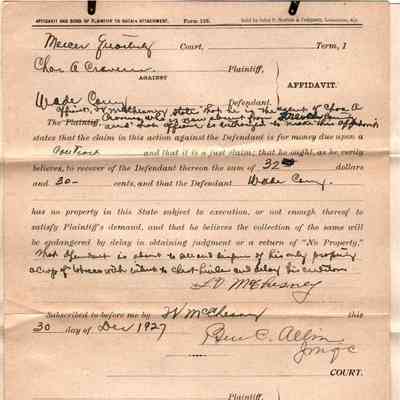 AFFIDAVIT AND BOND OF PLAINTIFF TO OBTAIN ATTACHMENT. Form 125. Sold by & Company,
Mercer Court, Term, 1
Chas A Cravens Plaintiff,
AGAINST AFFIDAVIT.
Wade Defendant.
McChesney states that he is the agent of Chas A
The Plaintiff, is now absent from
and that affiant is to make this affidavit
states that the claim in this action against the Defendant is for money due upon a
Contract and that it is a just claim; that he ought, as he verily
believes, to recover of the Defendant thereon the sum of 32 dollars
and 30- cents, and that the Defendant Wade
has no property in this State subject to execution, or not enough thereof to
satisfy Plaintiff's demand, and that he believes the collection of the same will
be endangered by delay in obtaining judgment or a return of "No Property,"
that defendant is about to dispose of his only property
a crop of tobacco with intent to cheat hinder and delay his creditors
McChesney
Subscribed to before me by McChesney this
30 day of Dec 1927
Ben C. Allin
COURT.
Plaintiff,